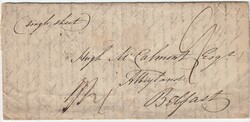 Single sheet
Hugh McCalmont Esqr
Abbeylands
Belfast